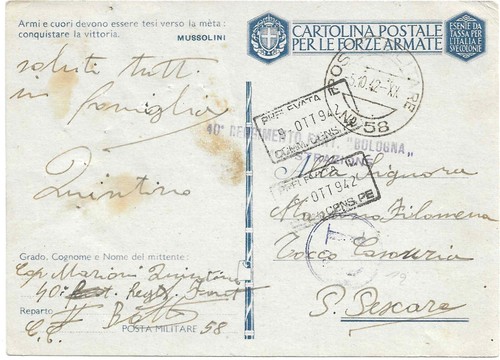 Armi e cuori devono essere tesi verso la mèta:
conquistare la vittoria. MUSSOLINI
CARTOLINA POSTALE
PER LE FORZE ARMATE
ESENTE DA
TASSA PER
L'ITALIA E
SVE COLONIE
saluti tutti
in famiglia
Quintino
5.10.42-XX
Nº 58
40° REGGIMENTO FANT. "BOLOGNA"
OTT 942
OTT 942
CENS. PE
Signora
Filomena
Tocco Casauria
P. Pescara
Grado, Cognome e Nome del mittente:
Cap. Marioni Quintino
40° Regg. Fant
Reparto II Batt
POSTA MILITARE 58